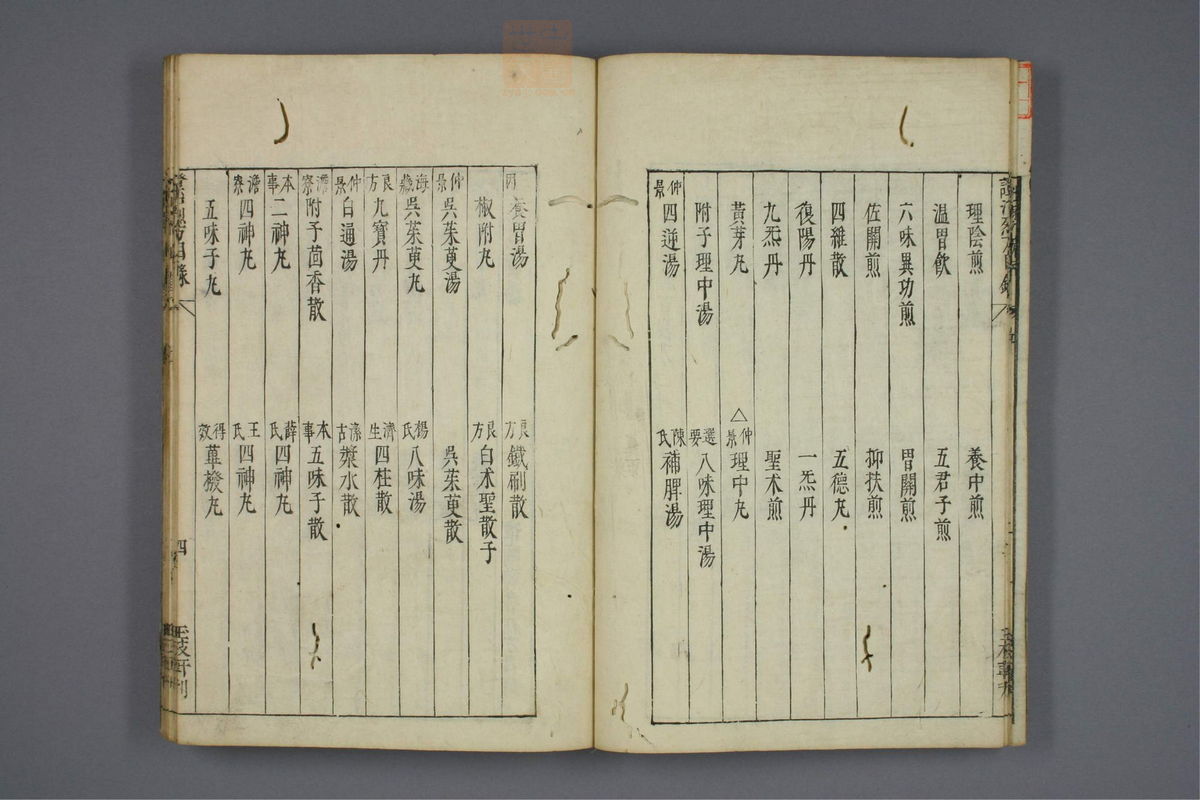 理陰煎 養中煎
温胃飲 五君子煎
六味異功煎 胃關煎
佐關煎 抑扶煎
四維散 五德丸
復陽丹 一炁丹
九炁丹 聖术煎
黃芽丸 △仲景理中丸
附子理中湯 選要八味理中湯
仲景四逆湯 陳氏補脾湯
養胃湯 良方鐵刷散
椒附丸 良方白术聖散子
仲景吳茱萸湯 吳茱萸散
海藏吳茱萸丸 楊氏八味湯
良方九寶丹 濟生四柱散
仲景白通湯 潔古漿水散
澹寮附子茴香散 本事五味子散
本事二神丸 薛氏四神丸
澹寮四神丸 王氏四神丸
五味子丸 得效蓽撥丸
四